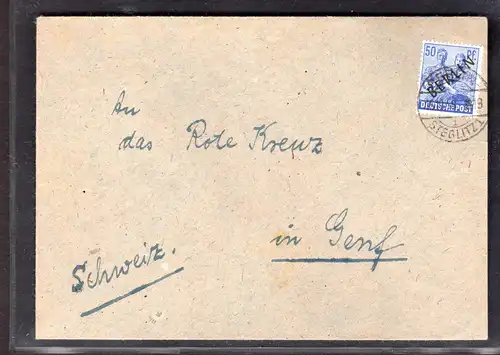 50 PF
BERLIN
DEUTSCHE POST
STEGLITZ 1
An
das Rote Kreuz
in Genf
Schweiz.